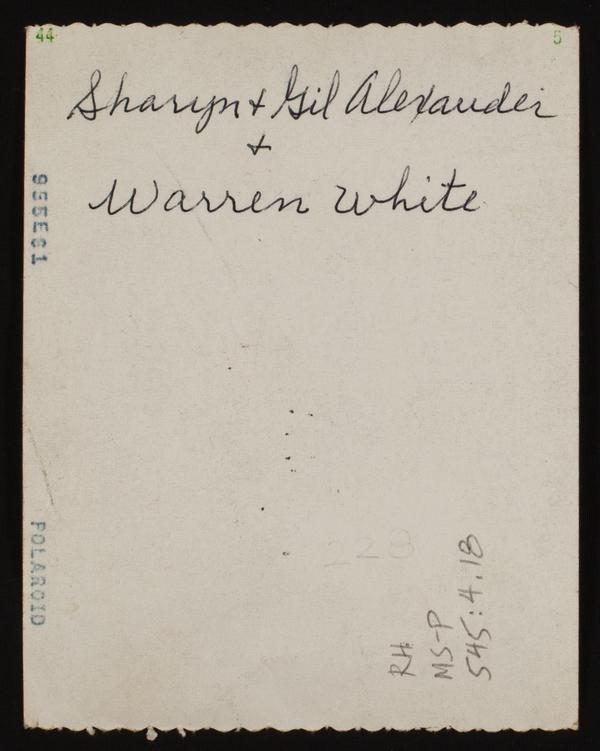 44 5
Sharyn + Gil Alexander
+
Warren White
9555E61
POLAROID
228
RH
MS-P
545:4.18